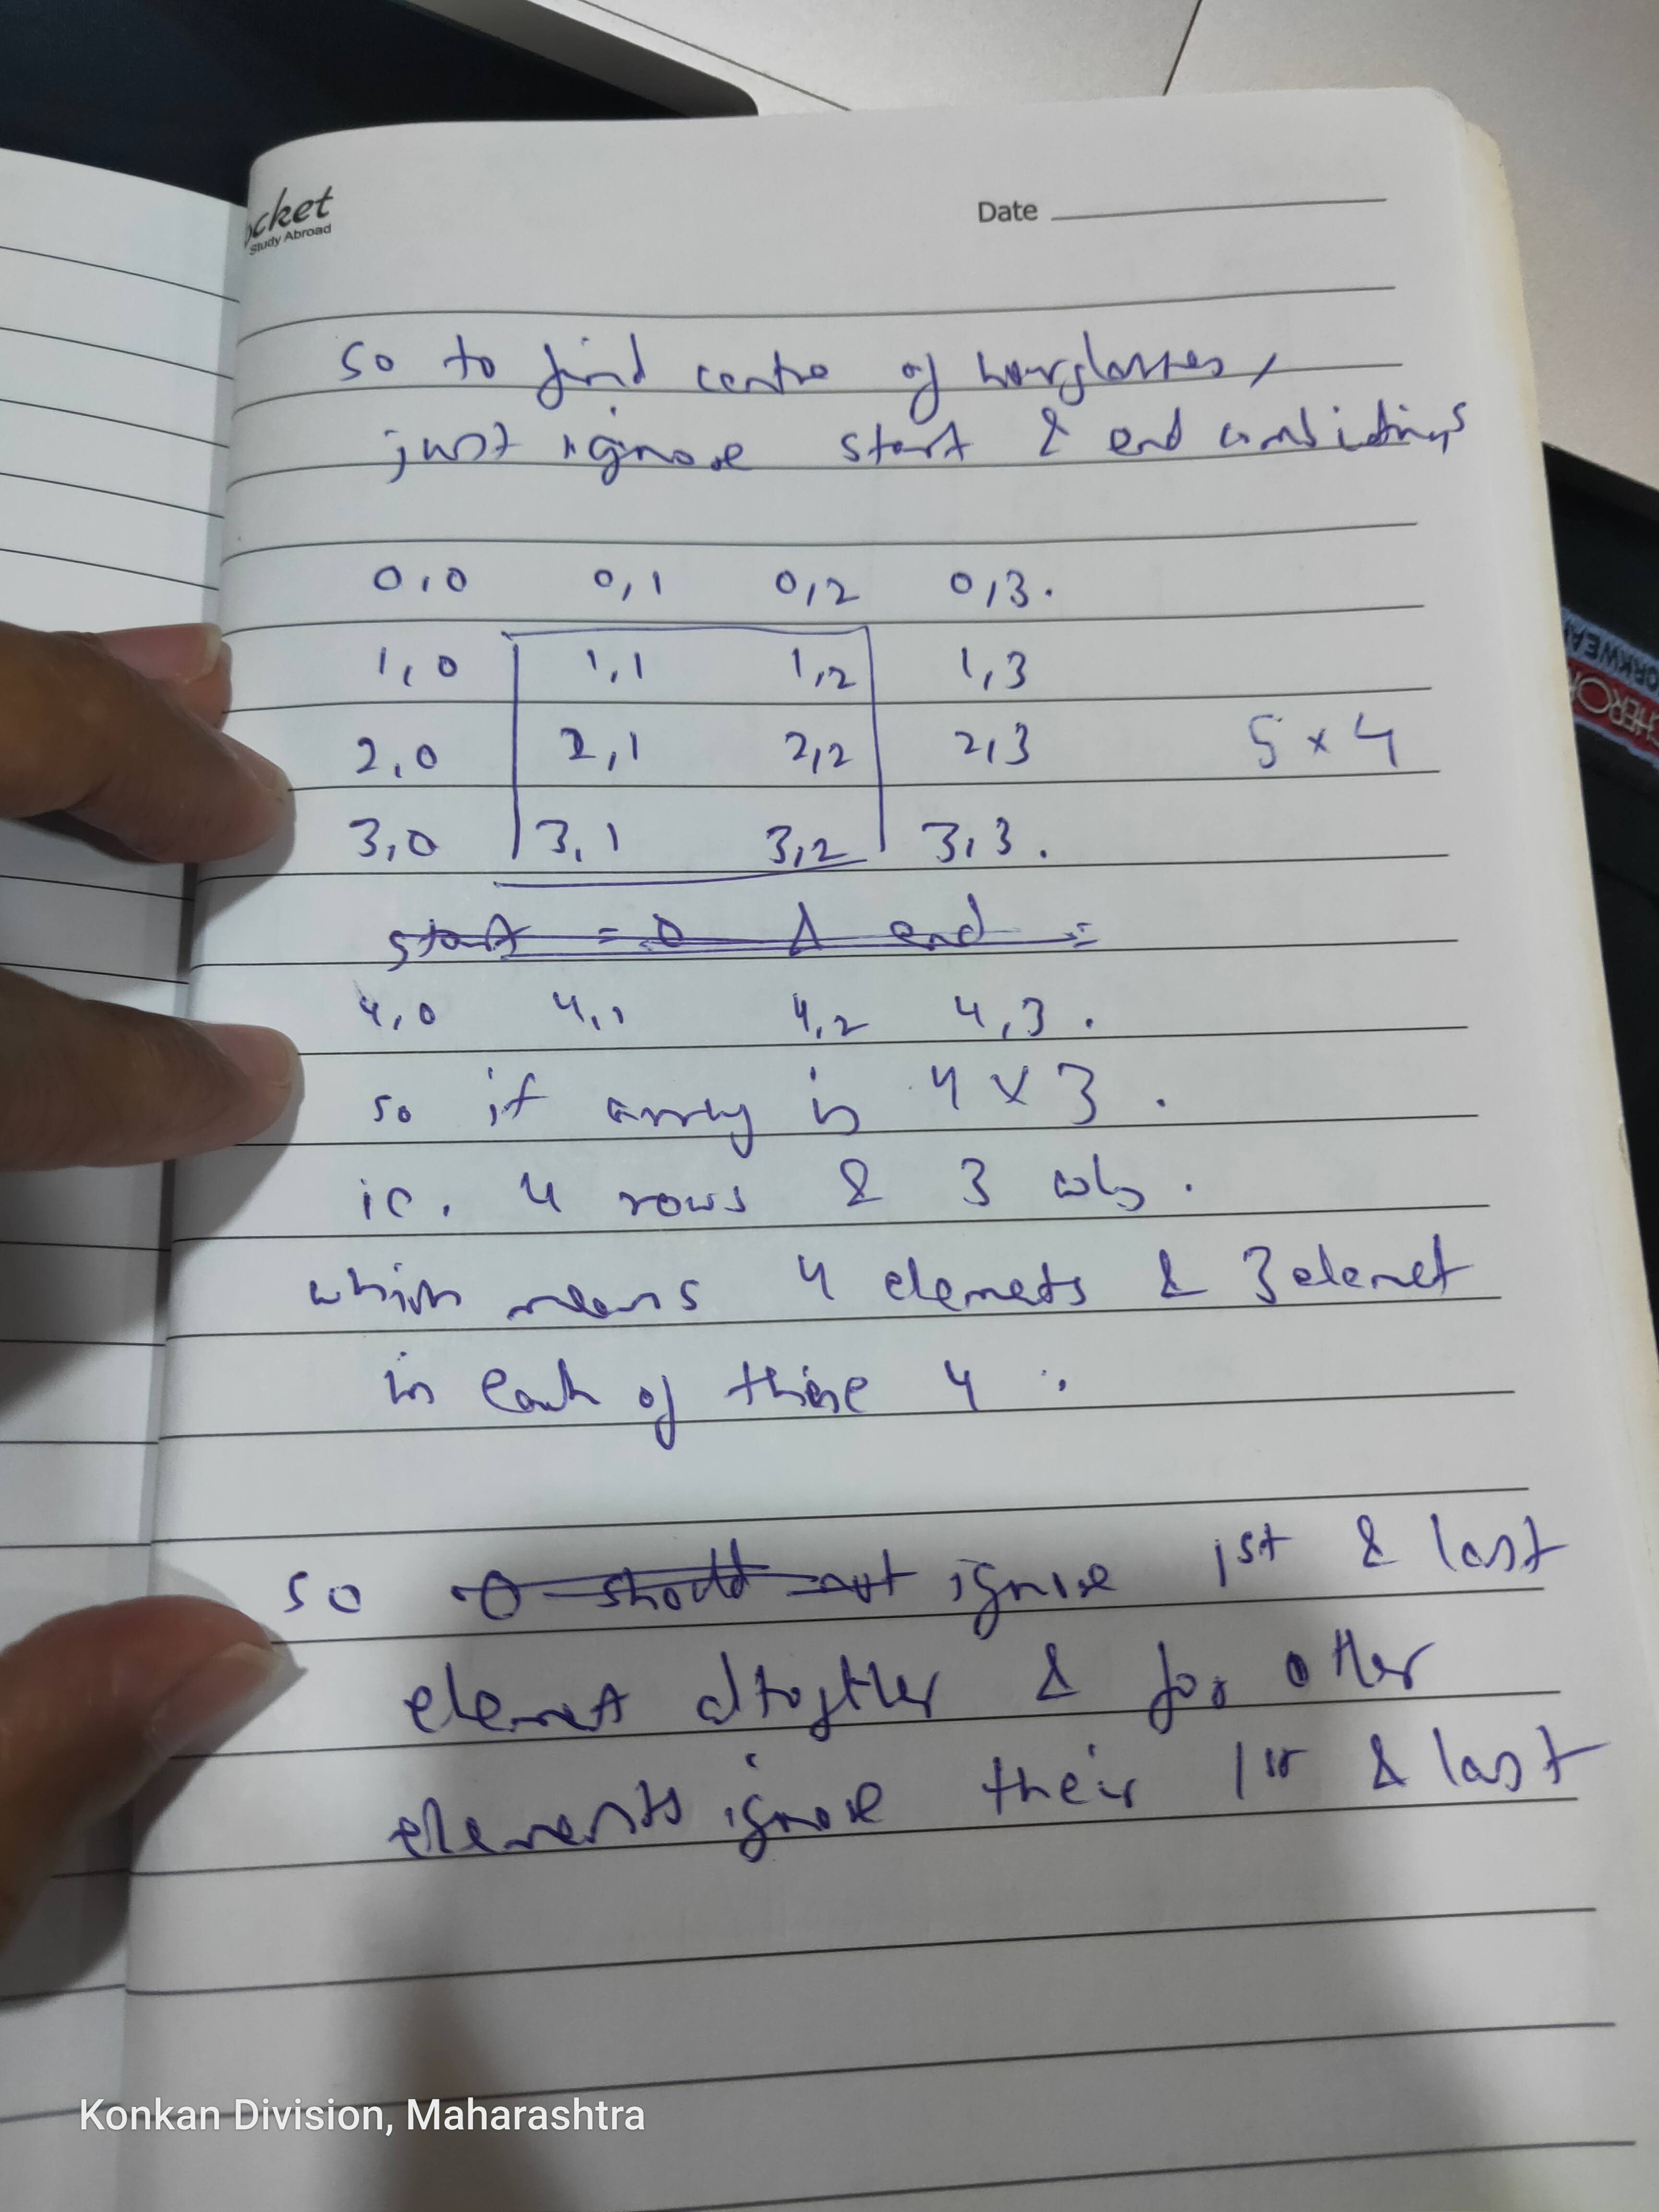 ocket
Study Abroad
Date
so to find centre of hourglasses,
just ignore start & end combintings
0,0 0,1 0,2 0,3.
1,0 1,1 1,2 1,3
2,0 2,1 2,2 2,3 5 x 4
3,0 3,1 3,2 3,3.
start = 0 & end =
4,0 4,1 4,2 4,3.
so if array is 4 x 3.
ie. 4 rows & 3 cols.
which means 4 elemets & 3 elemet
in each of these 4.
so 0 should not ignore 1st & last
element altogther & for other
elements ignore their 1st & last
HERO
WORKWEA
Konkan Division, Maharashtra